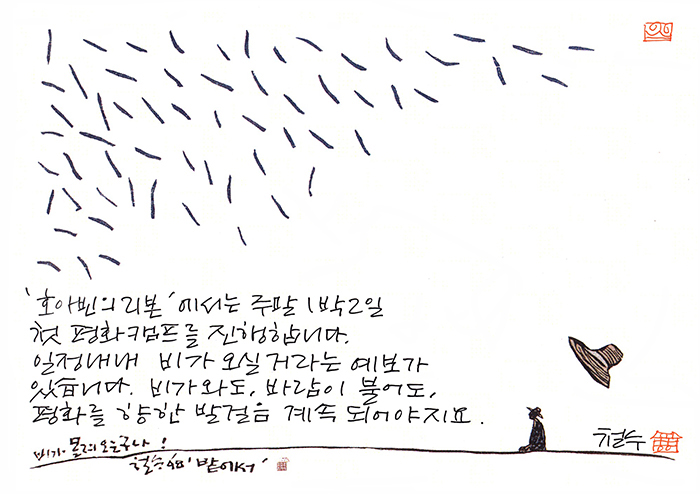 '호아빈의 리본'에서는 주말 1박2일
첫 평화캠프를 진행합니다.
일정내내 비가 오실거라는 예보가
있습니다. 비가와도, 바람이 불어도,
평화를 향한 발걸음 계속 되어야지요.
비가 몰려오는구나!
철수 98 '밭에서'
철수